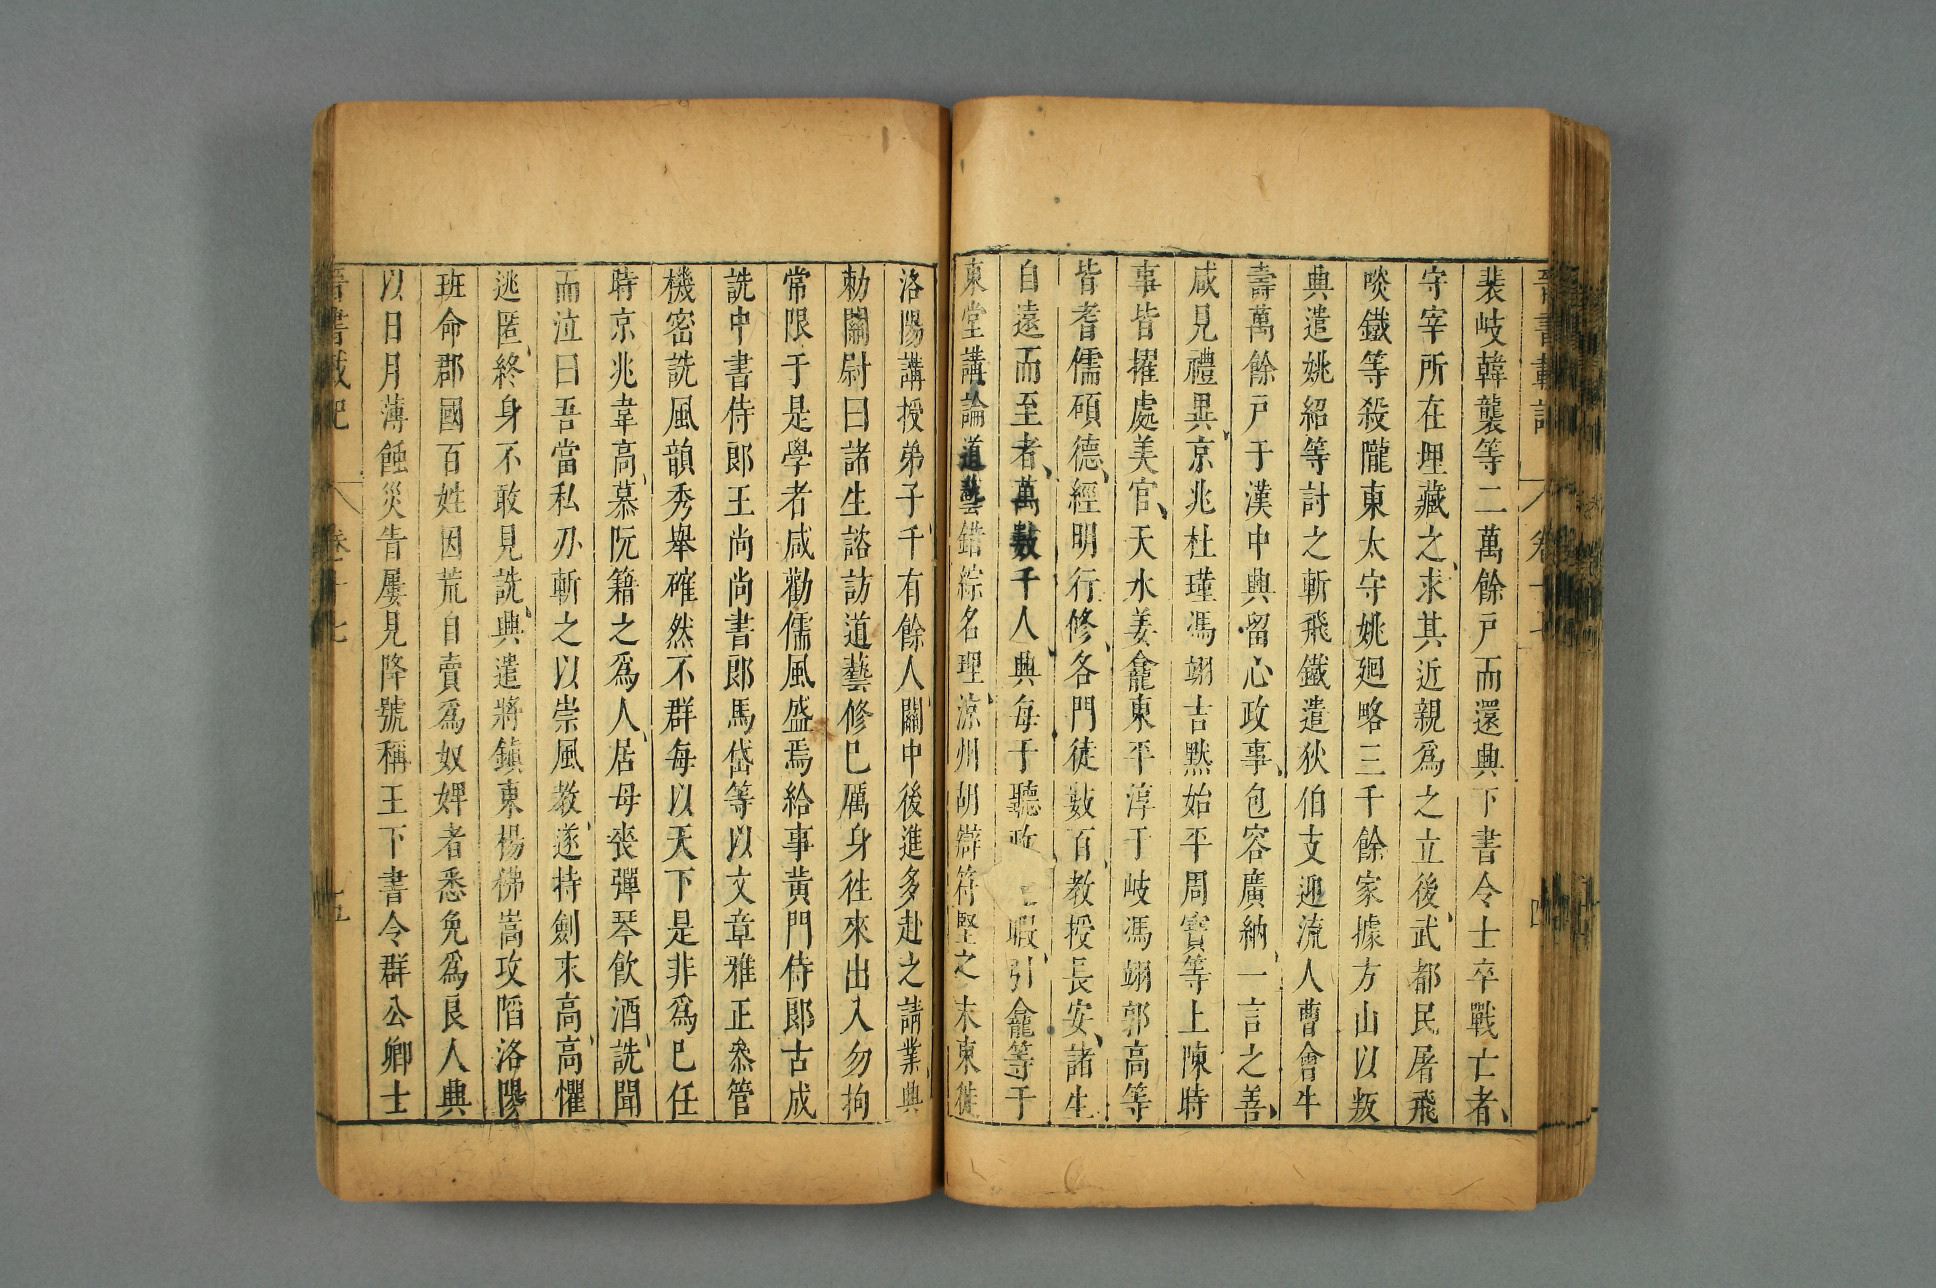 晉書載記 卷十七 四
裴岐韓襲等二萬餘戸而還興下書令士卒戰亡者
守宰所在埋藏之求其近親爲之立後武都民屠飛
啖鐵等殺隴東太守姚廻略三千餘家據方山以叛
興遣姚紹等討之斬飛鐵遣狄伯支迎流人曹會牛
壽萬餘戸于漢中興留心政事包容廣納一言之善
咸見禮異京兆杜瑾馮翊吉黙始平周寳等上陳時
事皆擢處美官天水姜龕東平淳于岐馮翊郭高等
皆耆儒碩德經明行修各門徒數百教授長安諸生
自遠而至者萬數千人興每于聽政 暇引龕等于
東堂講論道藝錯綜名理涼州胡辯苻堅之末東徙
洛陽講授弟子千有餘人關中後進多赴之請業興
勑關尉曰諸生諮訪道藝修巳厲身徃來出入勿拘
常限于是學者咸勸儒風盛焉給事黄門侍郎古成
詵中書侍郎王尚尚書郎馬岱等以文章雅正叅管
機密詵風韻秀舉確然不群每以天下是非爲巳任
時京兆韋高慕阮籍之爲人居母喪彈琴飲酒詵聞
而泣曰吾當私刃斬之以崇風教遂持劍求高高懼
逃匿終身不敢見詵興遣將鎮東楊佛嵩攻䧟洛陽
班命郡國百姓因荒自賣爲奴婢者悉免爲良人興
以日月薄蝕災眚屢見降號稱王下書令群公卿士
晉書載記 卷十七 五